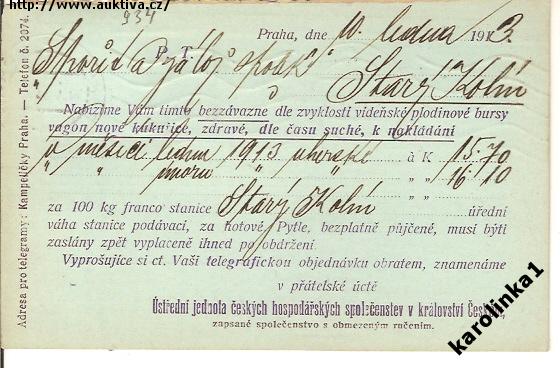 http://www.auktiva.cz/
934
Praha, dne 10. ledna 1913.
P. T.
Spořit. a Zálož. spolek
v
Starý Kolín
Nabízíme Vám tímto bezzávazně dle zvyklostí vídeňské plodinové bursy
vagon nové kukuřice, zdravé, dle času suché, k nakládání
v měsíci lednu 1913 uherské à K 15.70
" " únoru " " " " 16.10
za 100 kg franco stanice Starý Kolín úřední
váha stanice podávací, za hotové. Pytle, bezplatně půjčené, musí býti
zaslány zpět vyplaceně ihned po obdržení.
Vyprošujíce si ct. Vaši telegrafickou objednávku obratem, znamenáme
v přátelské úctě
Ústřední jednota českých hospodářských společenstev v království Českém,
zapsané společenstvo s obmezeným ručením.
Adresa pro telegramy: Kampeličky Praha. — Telefon č. 2074.
karolinka1